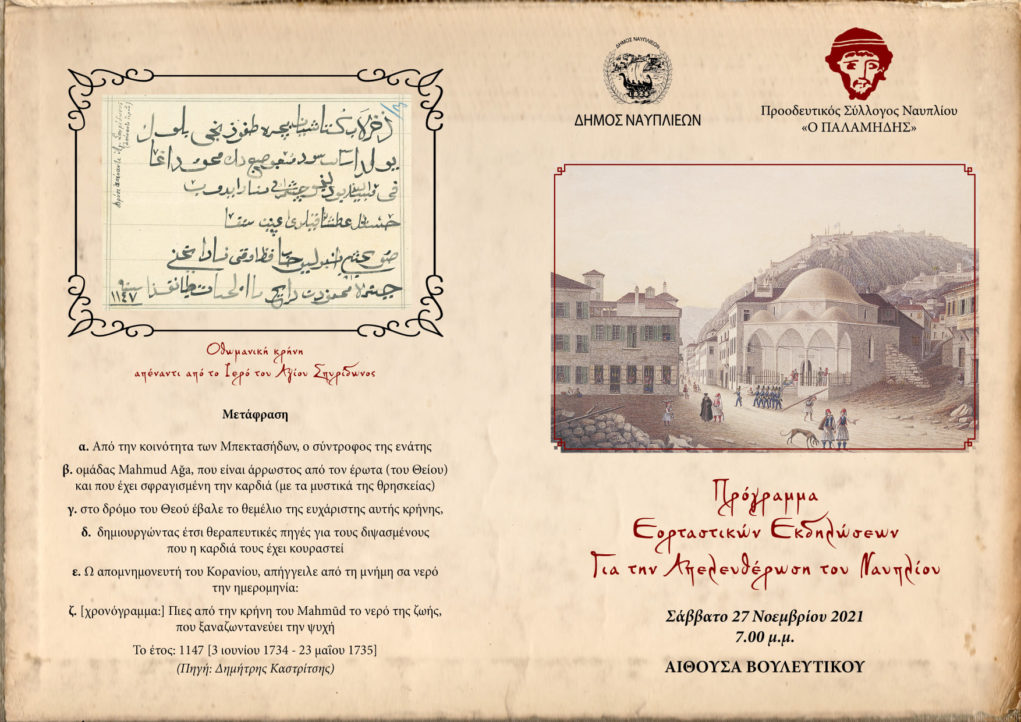 ١١٤٧
Οθωμανική κρήνη
απέναντι από το Ιερό του Αγίου Σπυρίδωνος
Μετάφραση
α. Από την κοινότητα των Μπεκτασήδων, ο σύντροφος της ενάτης
β. ομάδας Mahmud Ağa, που είναι άρρωστος από τον έρωτα (του Θείου)
και που έχει σφραγισμένη την καρδιά (με τα μυστικά της θρησκείας)
γ. στο δρόμο του Θεού έβαλε το θεμέλιο της ευχάριστης αυτής κρήνης,
δ. δημιουργώντας έτσι θεραπευτικές πηγές για τους διψασμένους
που η καρδιά τους έχει κουραστεί
ε. Ω απομνημονευτή του Κορανίου, απήγγειλε από τη μνήμη σα νερό
την ημερομηνία:
ζ. [χρονόγραμμα:] Πιες από την κρήνη του Mahmūd το νερό της ζωής,
που ξαναζωντανεύει την ψυχή
Το έτος: 1147 [3 ιουνίου 1734 - 23 μαΐου 1735]
(Πηγή: Δημήτρης Καστρίτσης)
ΔΗΜΟΣ ΝΑΥΠΛΙΕΩΝ
ΔΗΜΟΣ ΝΑΥΠΛΙΕΩΝ
Προοδευτικός Σύλλογος Ναυπλίου
«Ο ΠΑΛΑΜΗΔΗΣ»
Πρόγραμμα
Εορταστικών Εκδηλώσεων
Για την Απελευθέρωση του Ναυπλίου
Σάββατο 27 Νοεμβρίου 2021
7.00 μ.μ.
ΑΙΘΟΥΣΑ ΒΟΥΛΕΥΤΙΚΟΥ